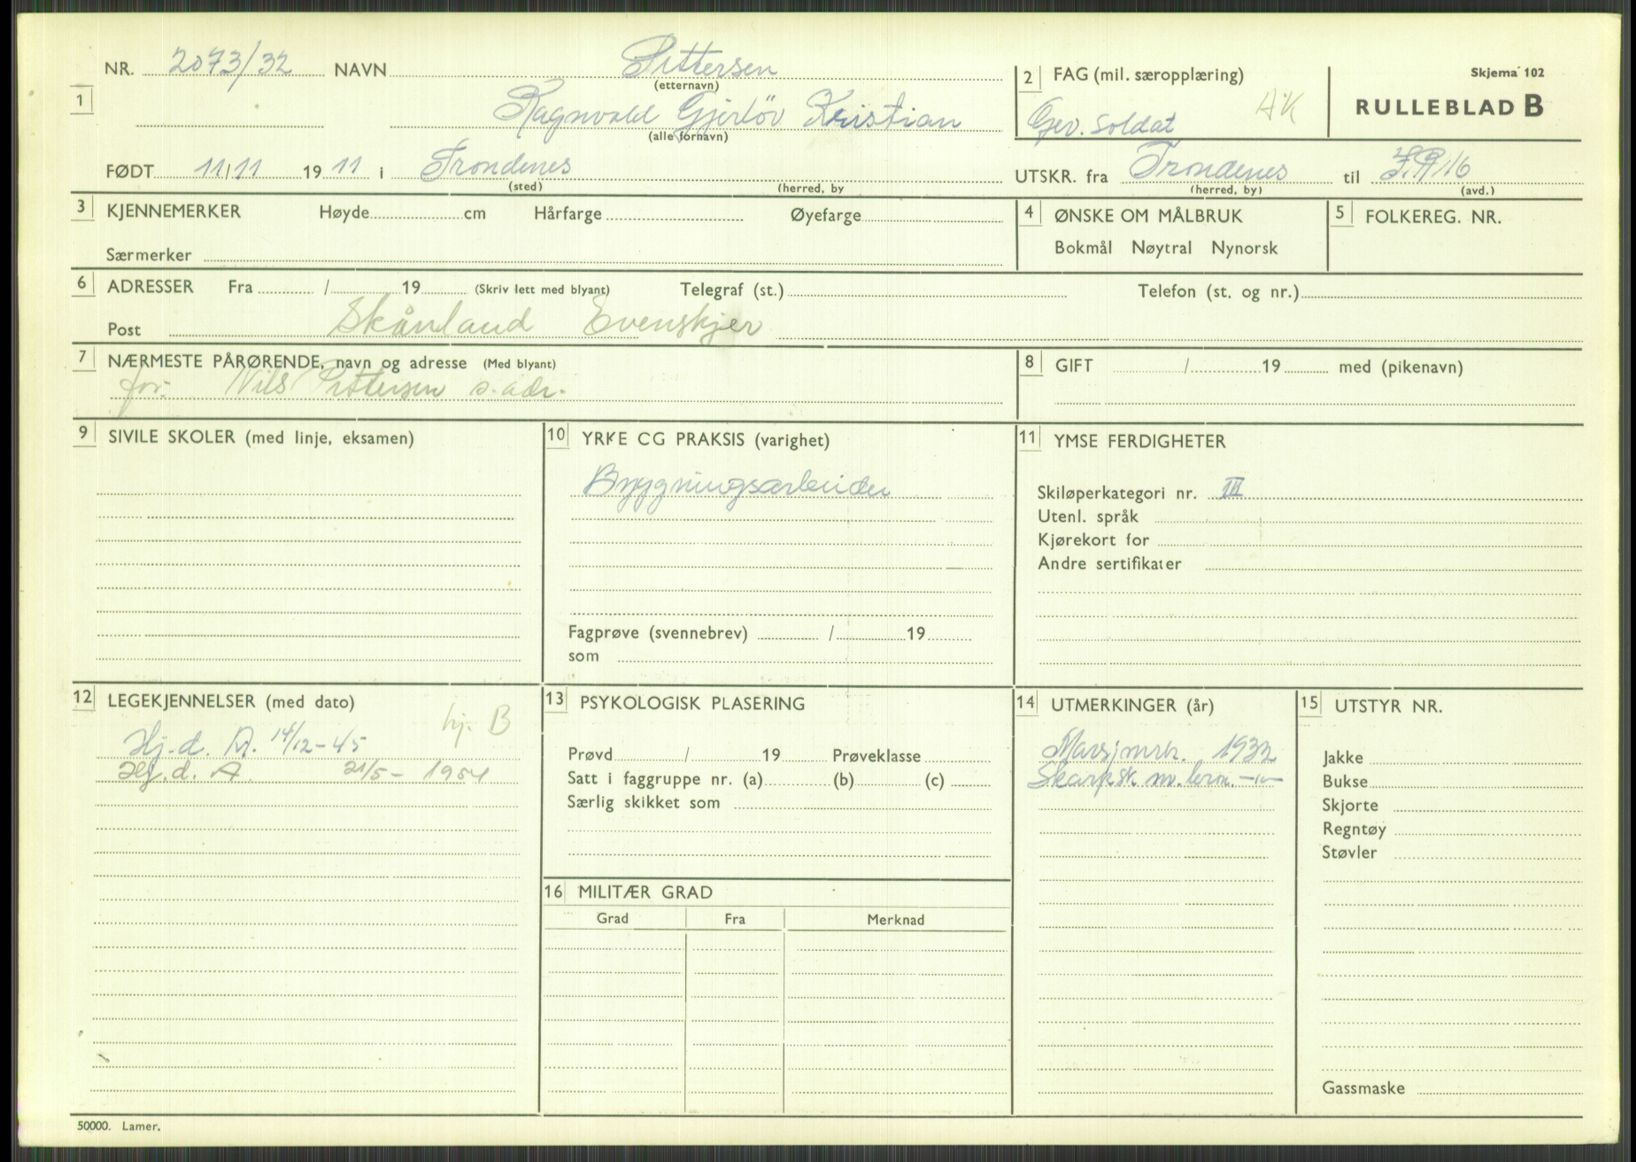 NR. 2073/32 NAVN Pettersen
(etternavn)
1
Ragnvald Gjerløv Kristian
(alle fornavn)
FØDT 11/11 1911 i Trondenes
(sted) (herred, by
2 FAG (mil. særopplæring)
Gev. soldat AK
Skjema 102
RULLEBLAD B
UTSKR. fra Trondenes til I.R.16
(herred, by) (avd.)
3 KJENNEMERKER Høyde cm Hårfarge Øyefarge
Særmerker
4 ØNSKE OM MÅLBRUK
Bokmål Nøytral Nynorsk
5 FOLKEREG. NR.
6 ADRESSER Fra / 19 (Skriv lett med blyant) Telegraf (st.) Telefon (st. og nr.)
Post Skånland Evenskjer
7 NÆRMESTE PÅRØRENDE, navn og adresse (Med blyant)
for: Nils Pettersen s. adr.
8 GIFT / 19 med (pikenavn)
9 SIVILE SKOLER (med linje, eksamen)
10 YRKE CG PRAKSIS (varighet)
Bygningsarbeider
Fagprøve (svennebrev) / 19
som
11 YMSE FERDIGHETER
Skiløperkategori nr. III
Utenl. språk
Kjørekort for
Andre sertifikater
12 LEGEKJENNELSER (med dato)
hj. B
Hj.d. A. 14/12-45
Hj.d. A 21/5 - 1954
13 PSYKOLOGISK PLASERING
Prøvd / 19 Prøveklasse
Satt i faggruppe nr. (a) (b) (c)
Særlig skikket som
14 UTMERKINGER (år)
Marsjmrk. 1932
Skarpsk. m. -"-
15 UTSTYR NR.
Jakke
Bukse
Skjorte
Regntøy
Støvler
Gassmaske
16 MILITÆR GRAD
Grad Fra Merknad
50000. Lamer.